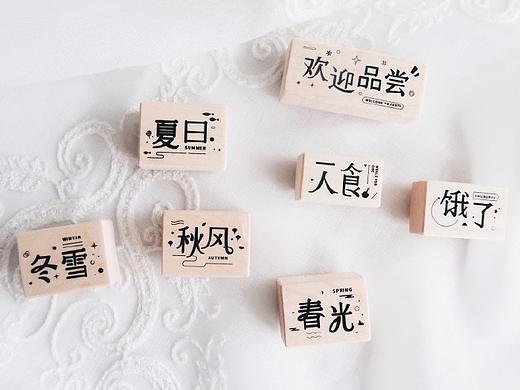 欢迎品尝
WELCOME TO TASTE
夏日
SUMMER
一人食
饿了
HUNGRY
冬雪
WINTER
秋风
AUTUMN
SPRING
春光